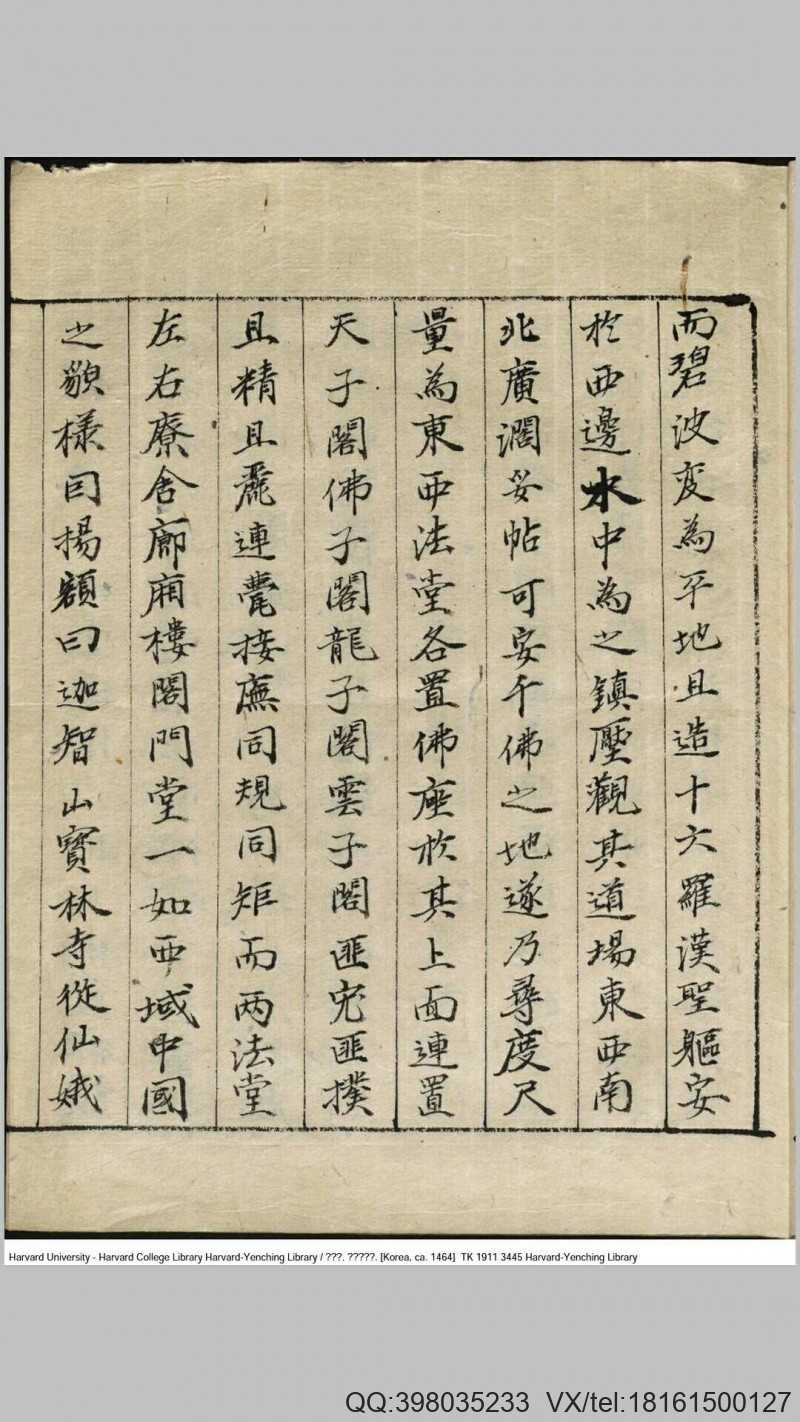 而碧波変為平地且造十六羅漢聖軀安
於西邊水中為之鎮壓觀其道場東西南
北廣濶妥帖可安千佛之地遂乃尋度尺
量為東西法堂各置佛座於其上面連置
天子閣佛子閣龍子閣雲子閣匪宄匪撲
且精且麗連甍接廡同規同矩而两法堂
左右寮舍廊廂樓閣門堂一如西域中國
之額様曰揚額曰迦智山寳林寺從仙娥
Harvard University - Harvard College Library Harvard-Yenching Library / ???. ?????. [Korea, ca. 1464] TK 1911 3445 Harvard-Yenching Library
QQ:398035233 VX/tel:18161500127